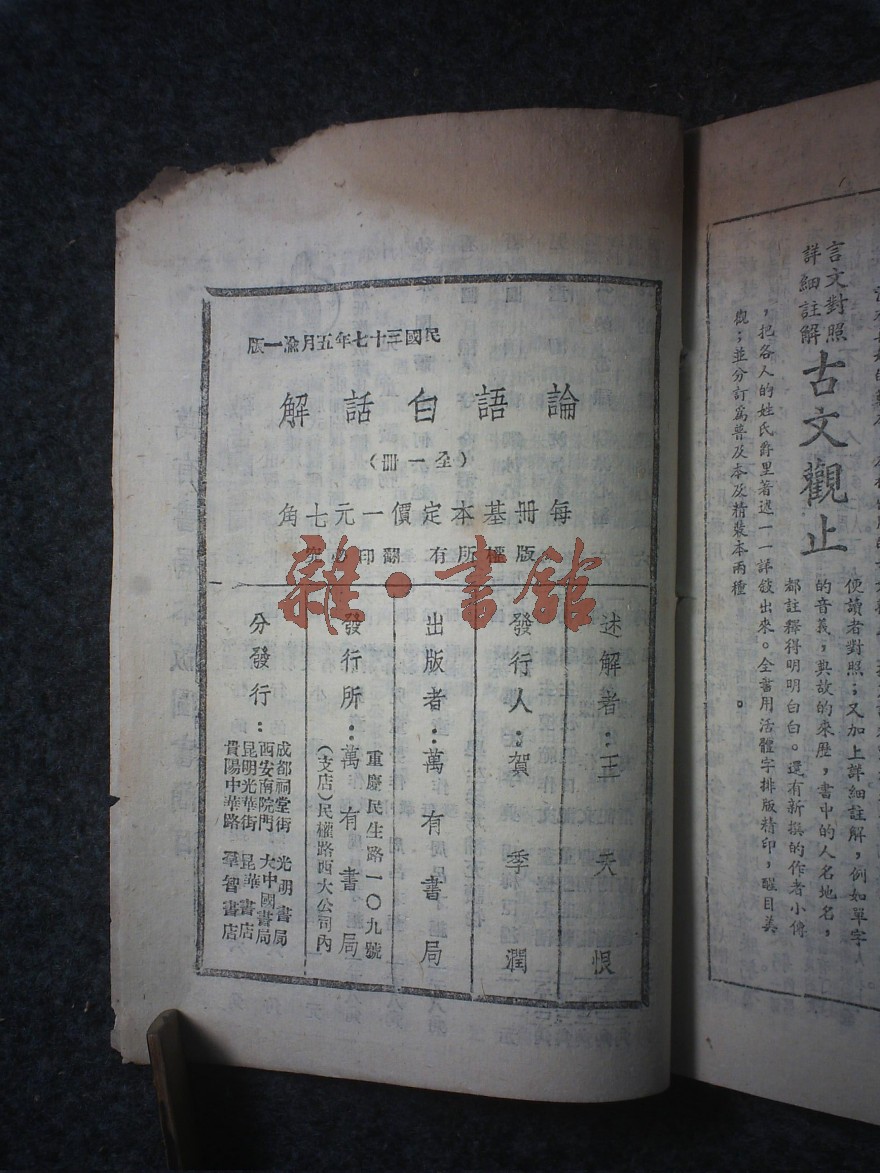 民國三十七年五月渝一版
論語白話解
（全一冊）
每冊基本定價一元七角
版權所有翻印必究
述解者：王天恨
發行人：賀季潤
出版者：萬有書局
發行所：萬有書局
重慶民生路一〇九號
（支店）民權路西大公司內
分發行：
成都祠堂街 光明書局
西安南院門 大中國書局
昆明光華街 昆華書店
貴陽中華路 羣智書店
雜·書館
言文對照
詳細註解
古文觀止
便讀者對照；又加上詳細註解，例如單字
的音義，典故的來歷，書中的人名地名，
都註釋得明明白白。還有新撰的作者小傳
，把各人的姓氏爵里著述一一詳敍出來。全書用活體字排版精印，醒目美
觀；並分訂爲普及本及精裝本兩種。